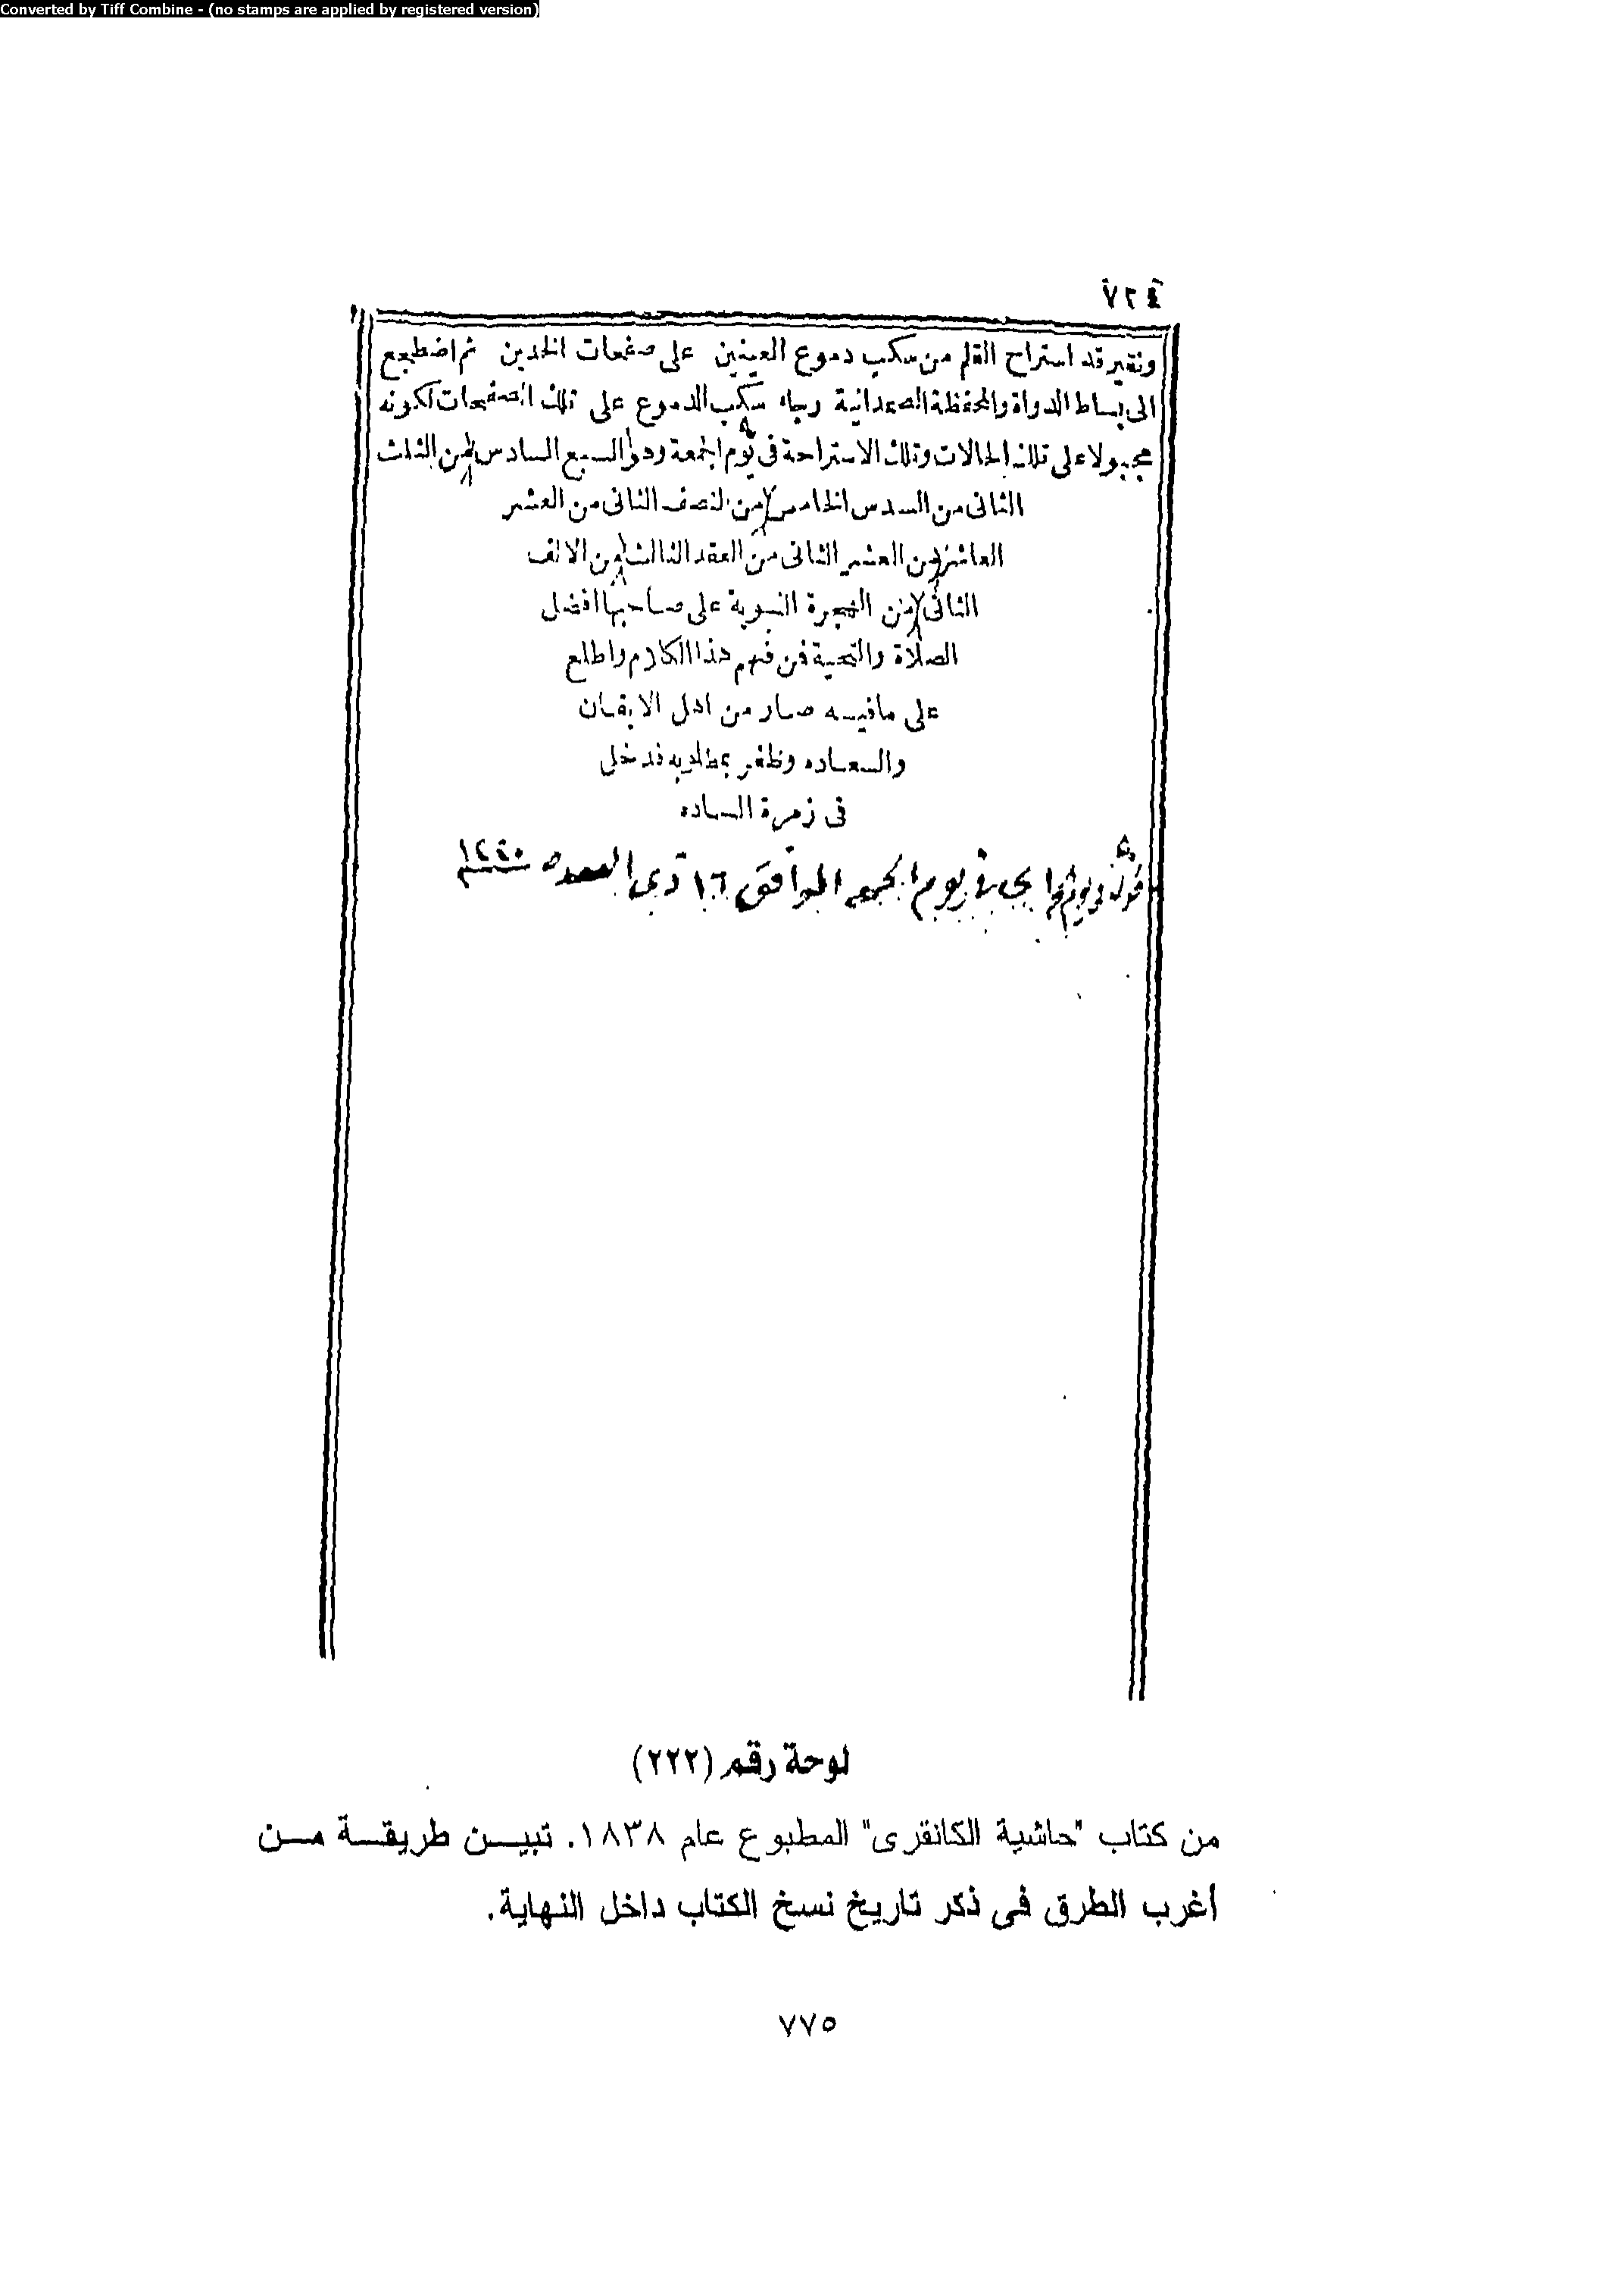 Converted by Tiff Combine - (no stamps are applied by registered version)
٧٢٤
ونقير قد استراح القلم من سكب دموع العينين على صفحات الخدين ثم اضطجع
الى بساط الدواة والمحفظة الصمدانية رجاء سكب الدموع على تلك الصفحات لكونه
مجبولا على تلك الحالات وتلك الاستراحة فى يوم الجمعة وهو السبع السادس من الثلث
الثانى من السدس الخامس من النصف الثانى من العشر
العاشر من العشر الثانى من العقد الثالث من الالف
الثانى من الهجرة النبوية على صاحبها افضل
الصلاة والتحية فمن فهم هذا الكلام واطلع
على مافيه صار من اهل الايقان
والسعاده وظفر بمطلوبه فدخل
فى زمرة الساده
فى يوم الجمعه الموافق ١٦ ذى القعده ١٢٤٠
لوحة رقم (٢٢٢)
من كتاب "حاشية الكانقرى" المطبوع عام ١٨٣٨. تبين طريقة من
أغرب الطرق فى ذكر تاريخ نسخ الكتاب داخل النهاية.
٧٧٥